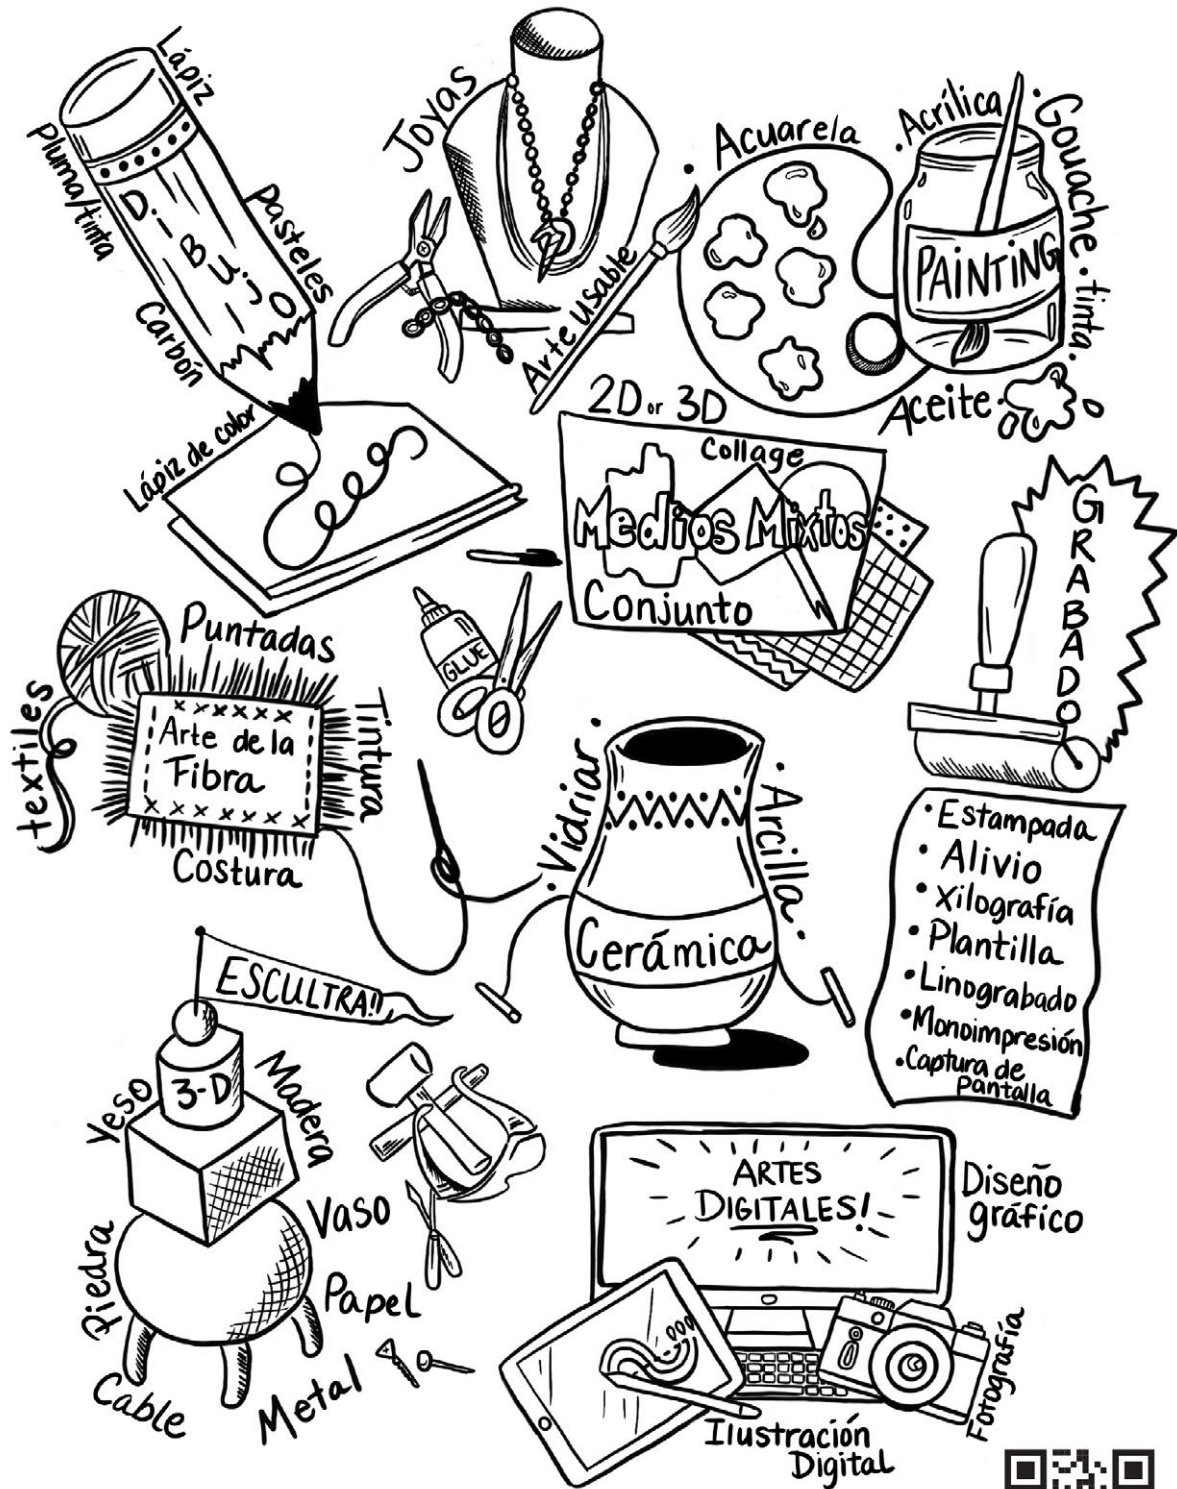 Lápiz
Pluma/tinta
DiBujO
pasteles
Carbón
Lápiz de color
Joyas
Arte usable
Acuarela
Acrílica
Gouache
tinta
PAiNTiNG
Aceite
2D or 3D
Collage
Medios Mixtos
Conjunto
GLUE
GRABADO
• Estampada
• Alivio
• Xilografía
• Plantilla
• Linograbado
• Monoimpresión
• Captura de
Pantalla
Puntadas
textiles
Arte de la
Fibra
Tintura
Costura
Vidriar
Arcilla
Cerámica
ESCULTRA!!
3-D
Yeso
Madera
Vaso
Piedra
Papel
Cable
Metal
ARTES
DIGITALES!
Diseño
gráfico
Fotografía
Ilustración
Digital